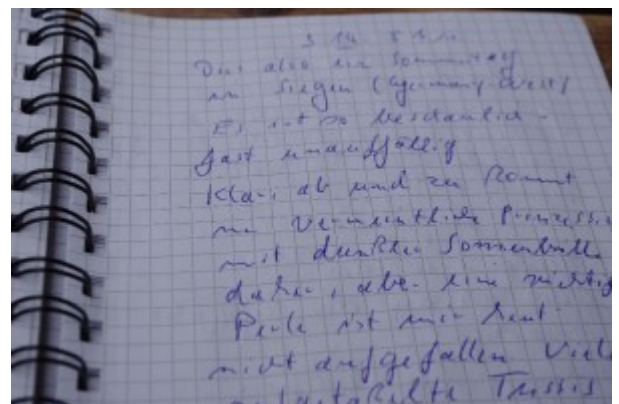 Das also ein Sommertag
in Siegen (Germany West)
Es ist so beschaulich -
fast unauffällig
Klar, ab und zu kommt
ne vermeintliche Prinzessin
mit dunkler Sonnenbrille
daher, aber eine richtig
Perle ist mir heut
nicht aufgefallen Viel
Tussis